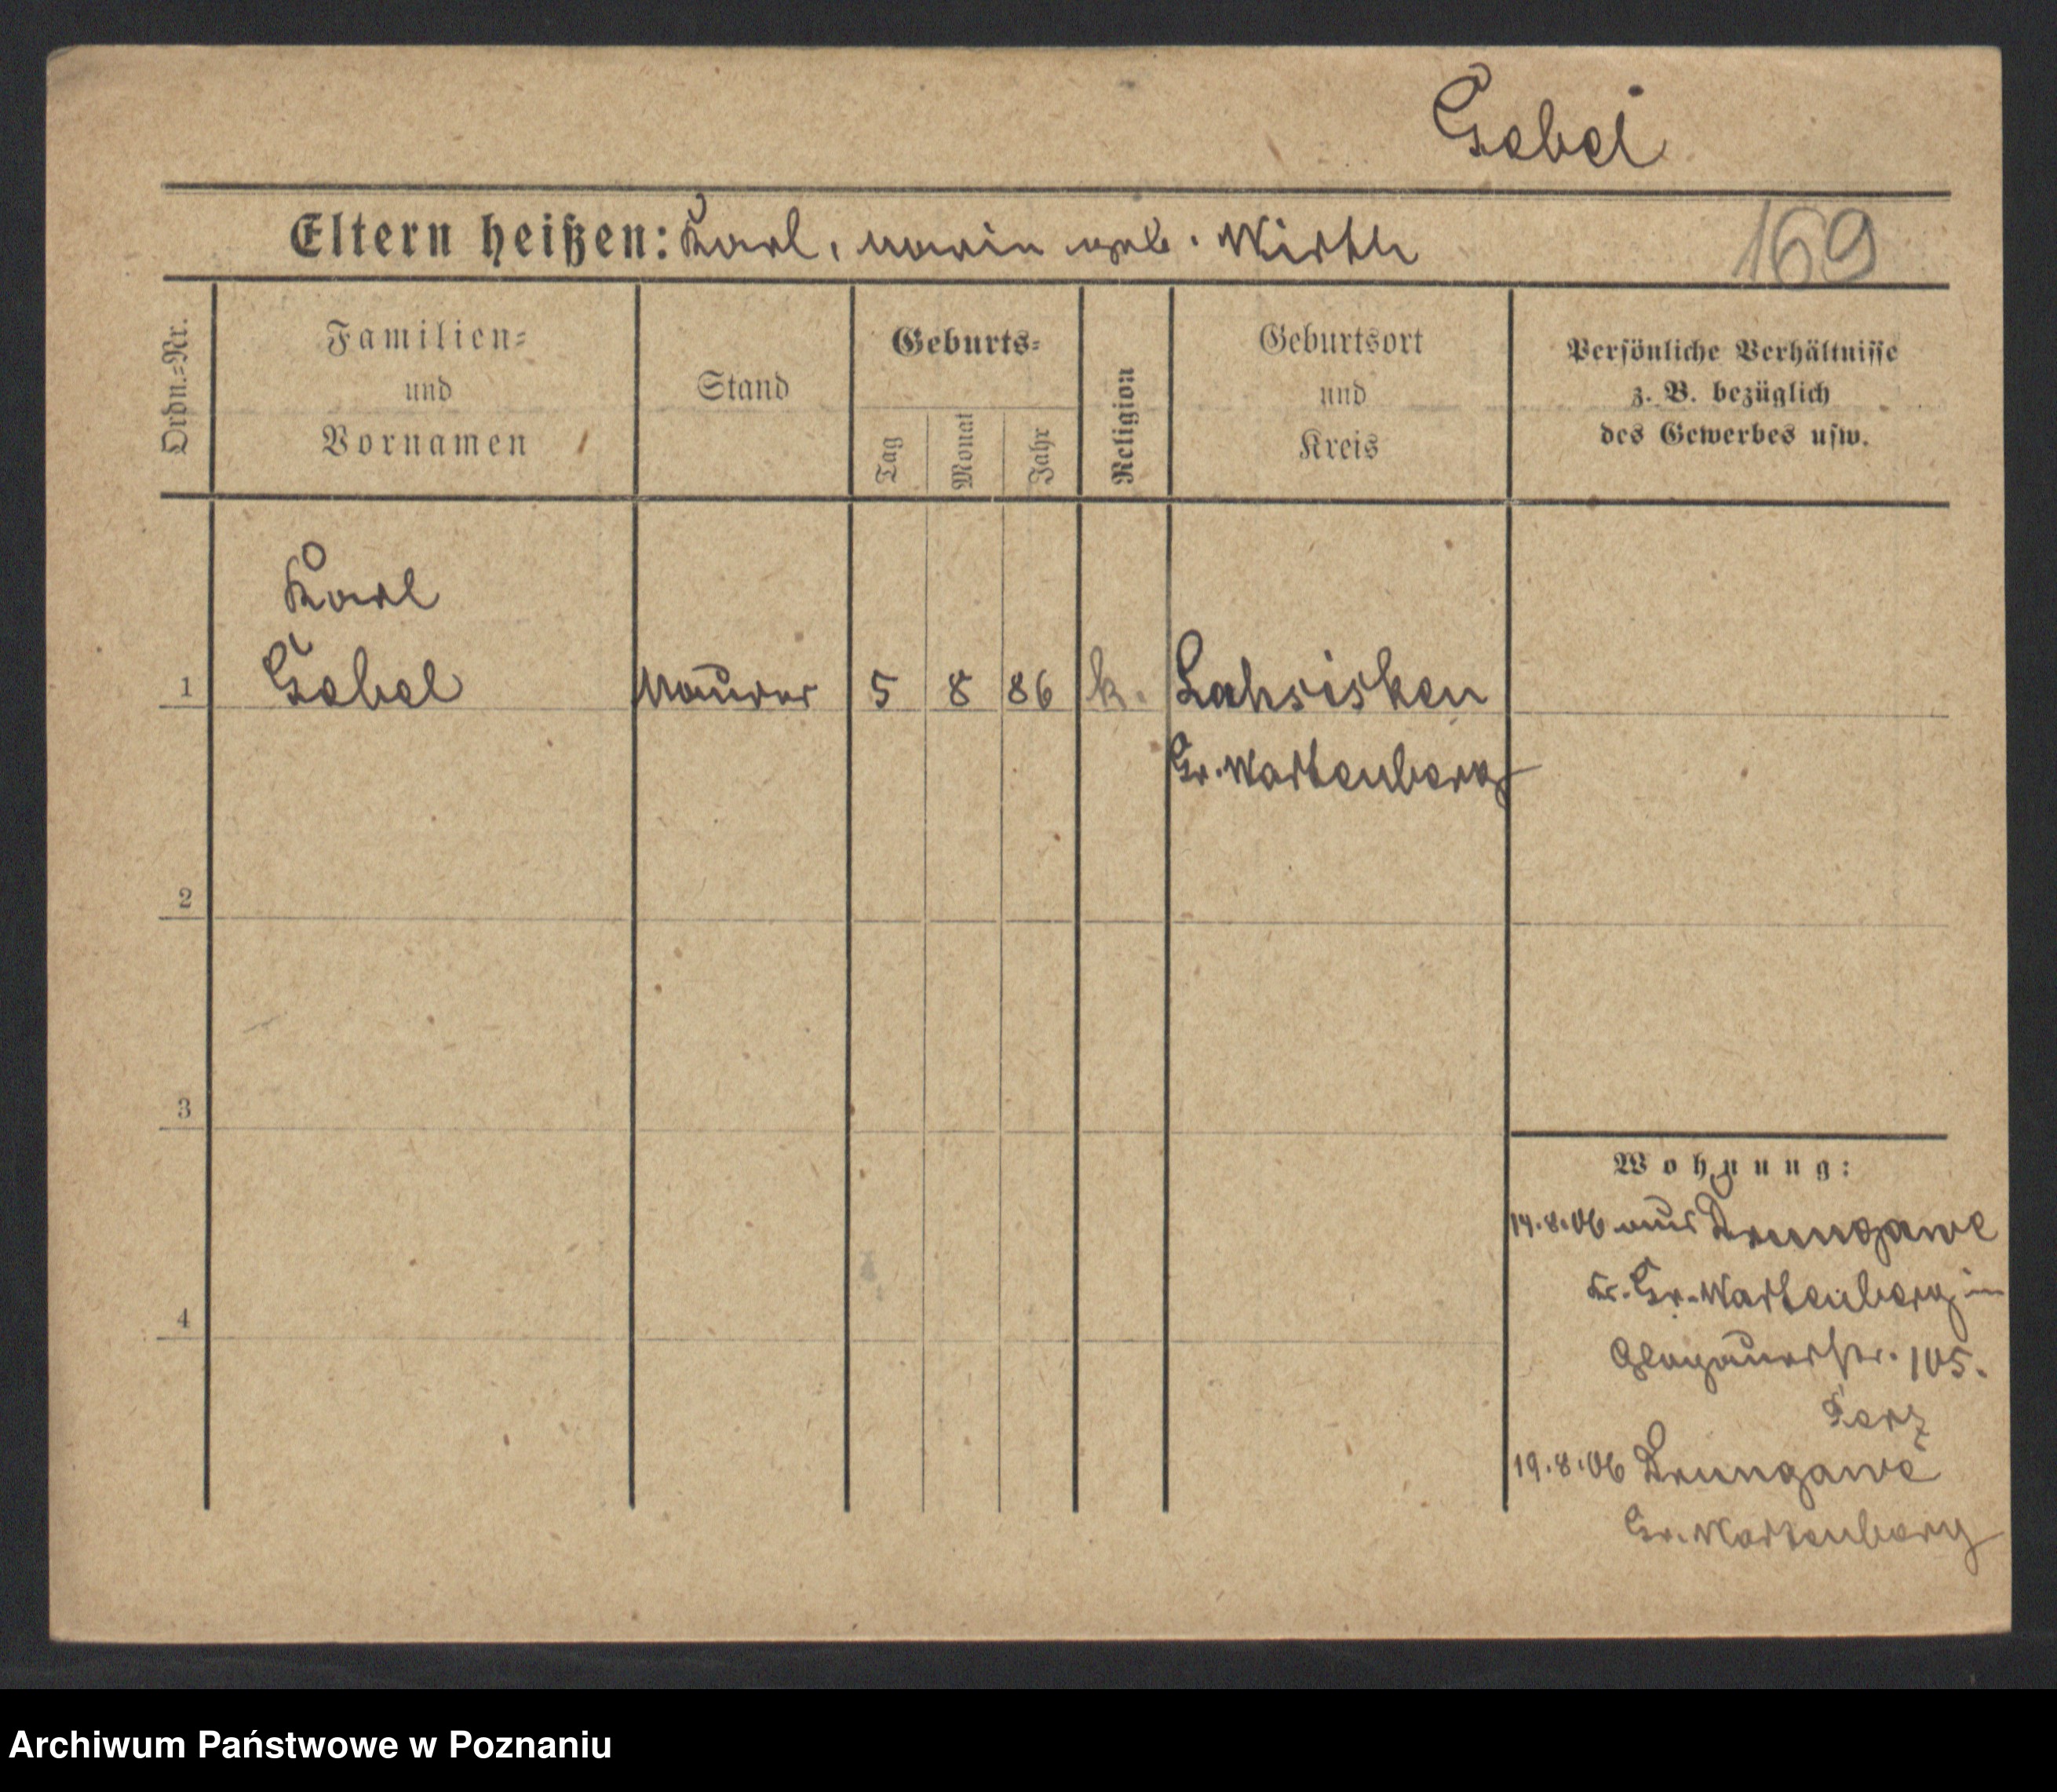 Gabel
Eltern heißen: Karl, Marie geb. Wirth
169
Ordn.-Nr.
Familien-
und
Vornamen
Stand
Geburts-
Tag
Monat
Jahr
Religion
Geburtsort
und
Kreis
Persönliche Verhältnisse
z. B. bezüglich
des Gewerbes usw.
Karl
1 Gabel Maurer 5 8 86 k.
Gr. Wartenberg
2
3
4
Wohnung:
14.8.06 aus Drungawe
Kr. Gr. Wartenberg in
Glogauerstr. 105.
19.8.06 Drungawe
Gr. Wartenberg
Archiwum Państwowe w Poznaniu